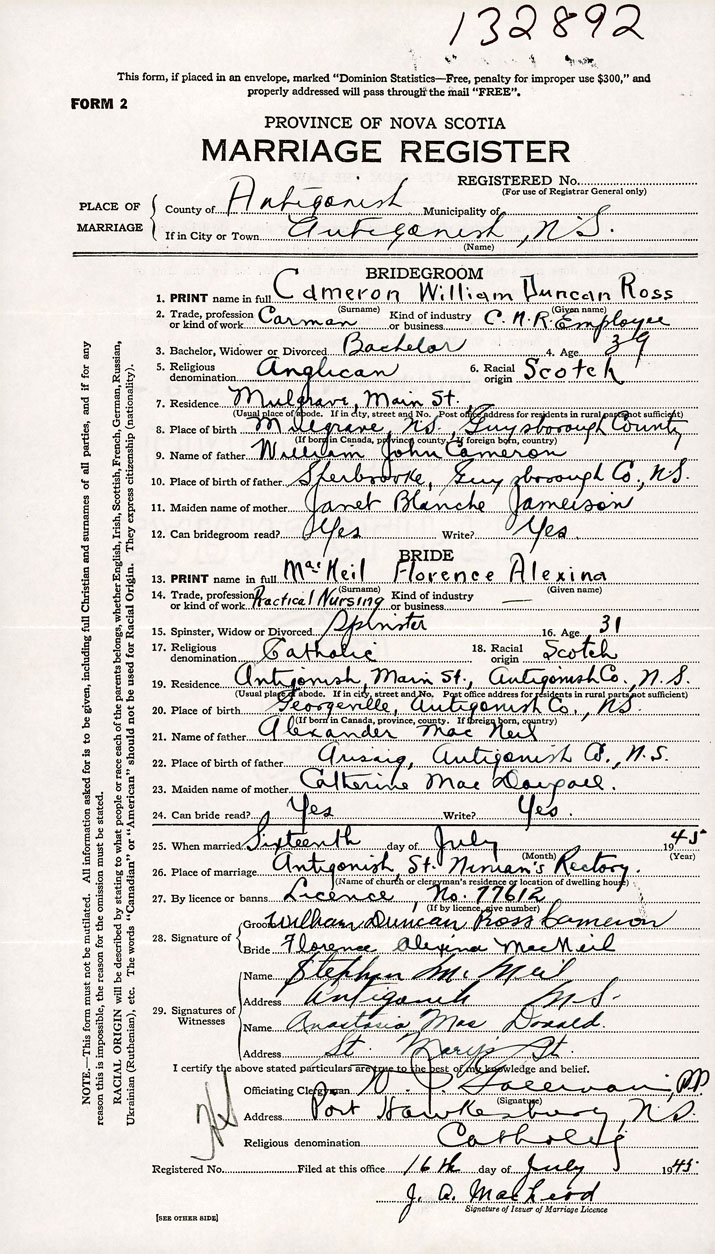 132892
This form, if placed in an envelope, marked “Dominion Statistics—Free, penalty for improper use $300,” and
properly addressed will pass through the mail “FREE”.
FORM 2
PROVINCE OF NOVA SCOTIA
MARRIAGE REGISTER
REGISTERED No.
(For use of Registrar General only)
PLACE OF MARRIAGE
County of Antigonish Municipality of
If in City or Town Antigonish, N.S.
(Name)
BRIDEGROOM
1. PRINT name in full Cameron William Duncan Ross
(Surname) (Given name)
2. Trade, profession or kind of work Carman Kind of industry or business C.N.R. Employee
3. Bachelor, Widower or Divorced Bachelor 4. Age 39
5. Religious denomination Anglican 6. Racial origin Scotch
7. Residence Mulgrave, Main St.
(Usual place of abode. If in city, street and No. Post office address for residents in rural parts not sufficient)
8. Place of birth Mulgrave, N.S. Guysborough County
(If born in Canada, province, county. If foreign born, country)
9. Name of father William John Cameron
10. Place of birth of father Sherbrooke, Guysborough Co., N.S.
11. Maiden name of mother Janet Blanche Jameison
12. Can bridegroom read? Yes Write? Yes
BRIDE
13. PRINT name in full MacNeil Florence Alexina
(Surname) (Given name)
14. Trade, profession or kind of work Practical Nursing Kind of industry or business —
15. Spinster, Widow or Divorced Spinster 16. Age 31
17. Religious denomination Catholic 18. Racial origin Scotch
19. Residence Antigonish, Main St., Antigonish Co., N.S.
(Usual place of abode. If in city, street and No. Post office address for residents in rural parts not sufficient)
20. Place of birth Georgeville, Antigonish Co., N.S.
(If born in Canada, province, county. If foreign born, country)
21. Name of father Alexander MacNeil
22. Place of birth of father Arisaig, Antigonish Co., N.S.
23. Maiden name of mother Catherine MacDougall
24. Can bride read? Yes Write? Yes.
25. When married Sixteenth day of July 1945
(Month) (Year)
26. Place of marriage Antigonish, St. Ninian's Rectory.
(Name of church or clergyman's residence or location of dwelling house)
27. By licence or banns Licence, No. 77612
(If by licence, give number)
28. Signature of
Groom William Duncan Ross Cameron
Bride Florence Alexina MacNeil
29. Signatures of Witnesses
Name Stephen McNeil
Address Antigonish N.S.
Name Anastasia MacDonald.
Address St. Mary's St.
I certify the above stated particulars are true to the best of my knowledge and belief.
Officiating Clergyman P.P.
(Signature)
Address Port Hawkesbury, N.S.
Religious denomination Catholic
Registered No. Filed at this office 16th day of July 1945
J. A. MacLeod
Signature of Issuer of Marriage Licence
[SEE OTHER SIDE]
NOTE.—This form must not be mutilated. All information asked for is to be given, including full Christian and surnames of all parties, and if for any
reason this is impossible, the reason for the omission must be stated.
RACIAL ORIGIN will be described by stating to what people or race each of the parents belongs, whether English, Irish, Scottish, French, German, Russian,
Ukrainian (Ruthenian), etc. The words “Canadian” or “American” should not be used for Racial Origin. They express citizenship (nationality).